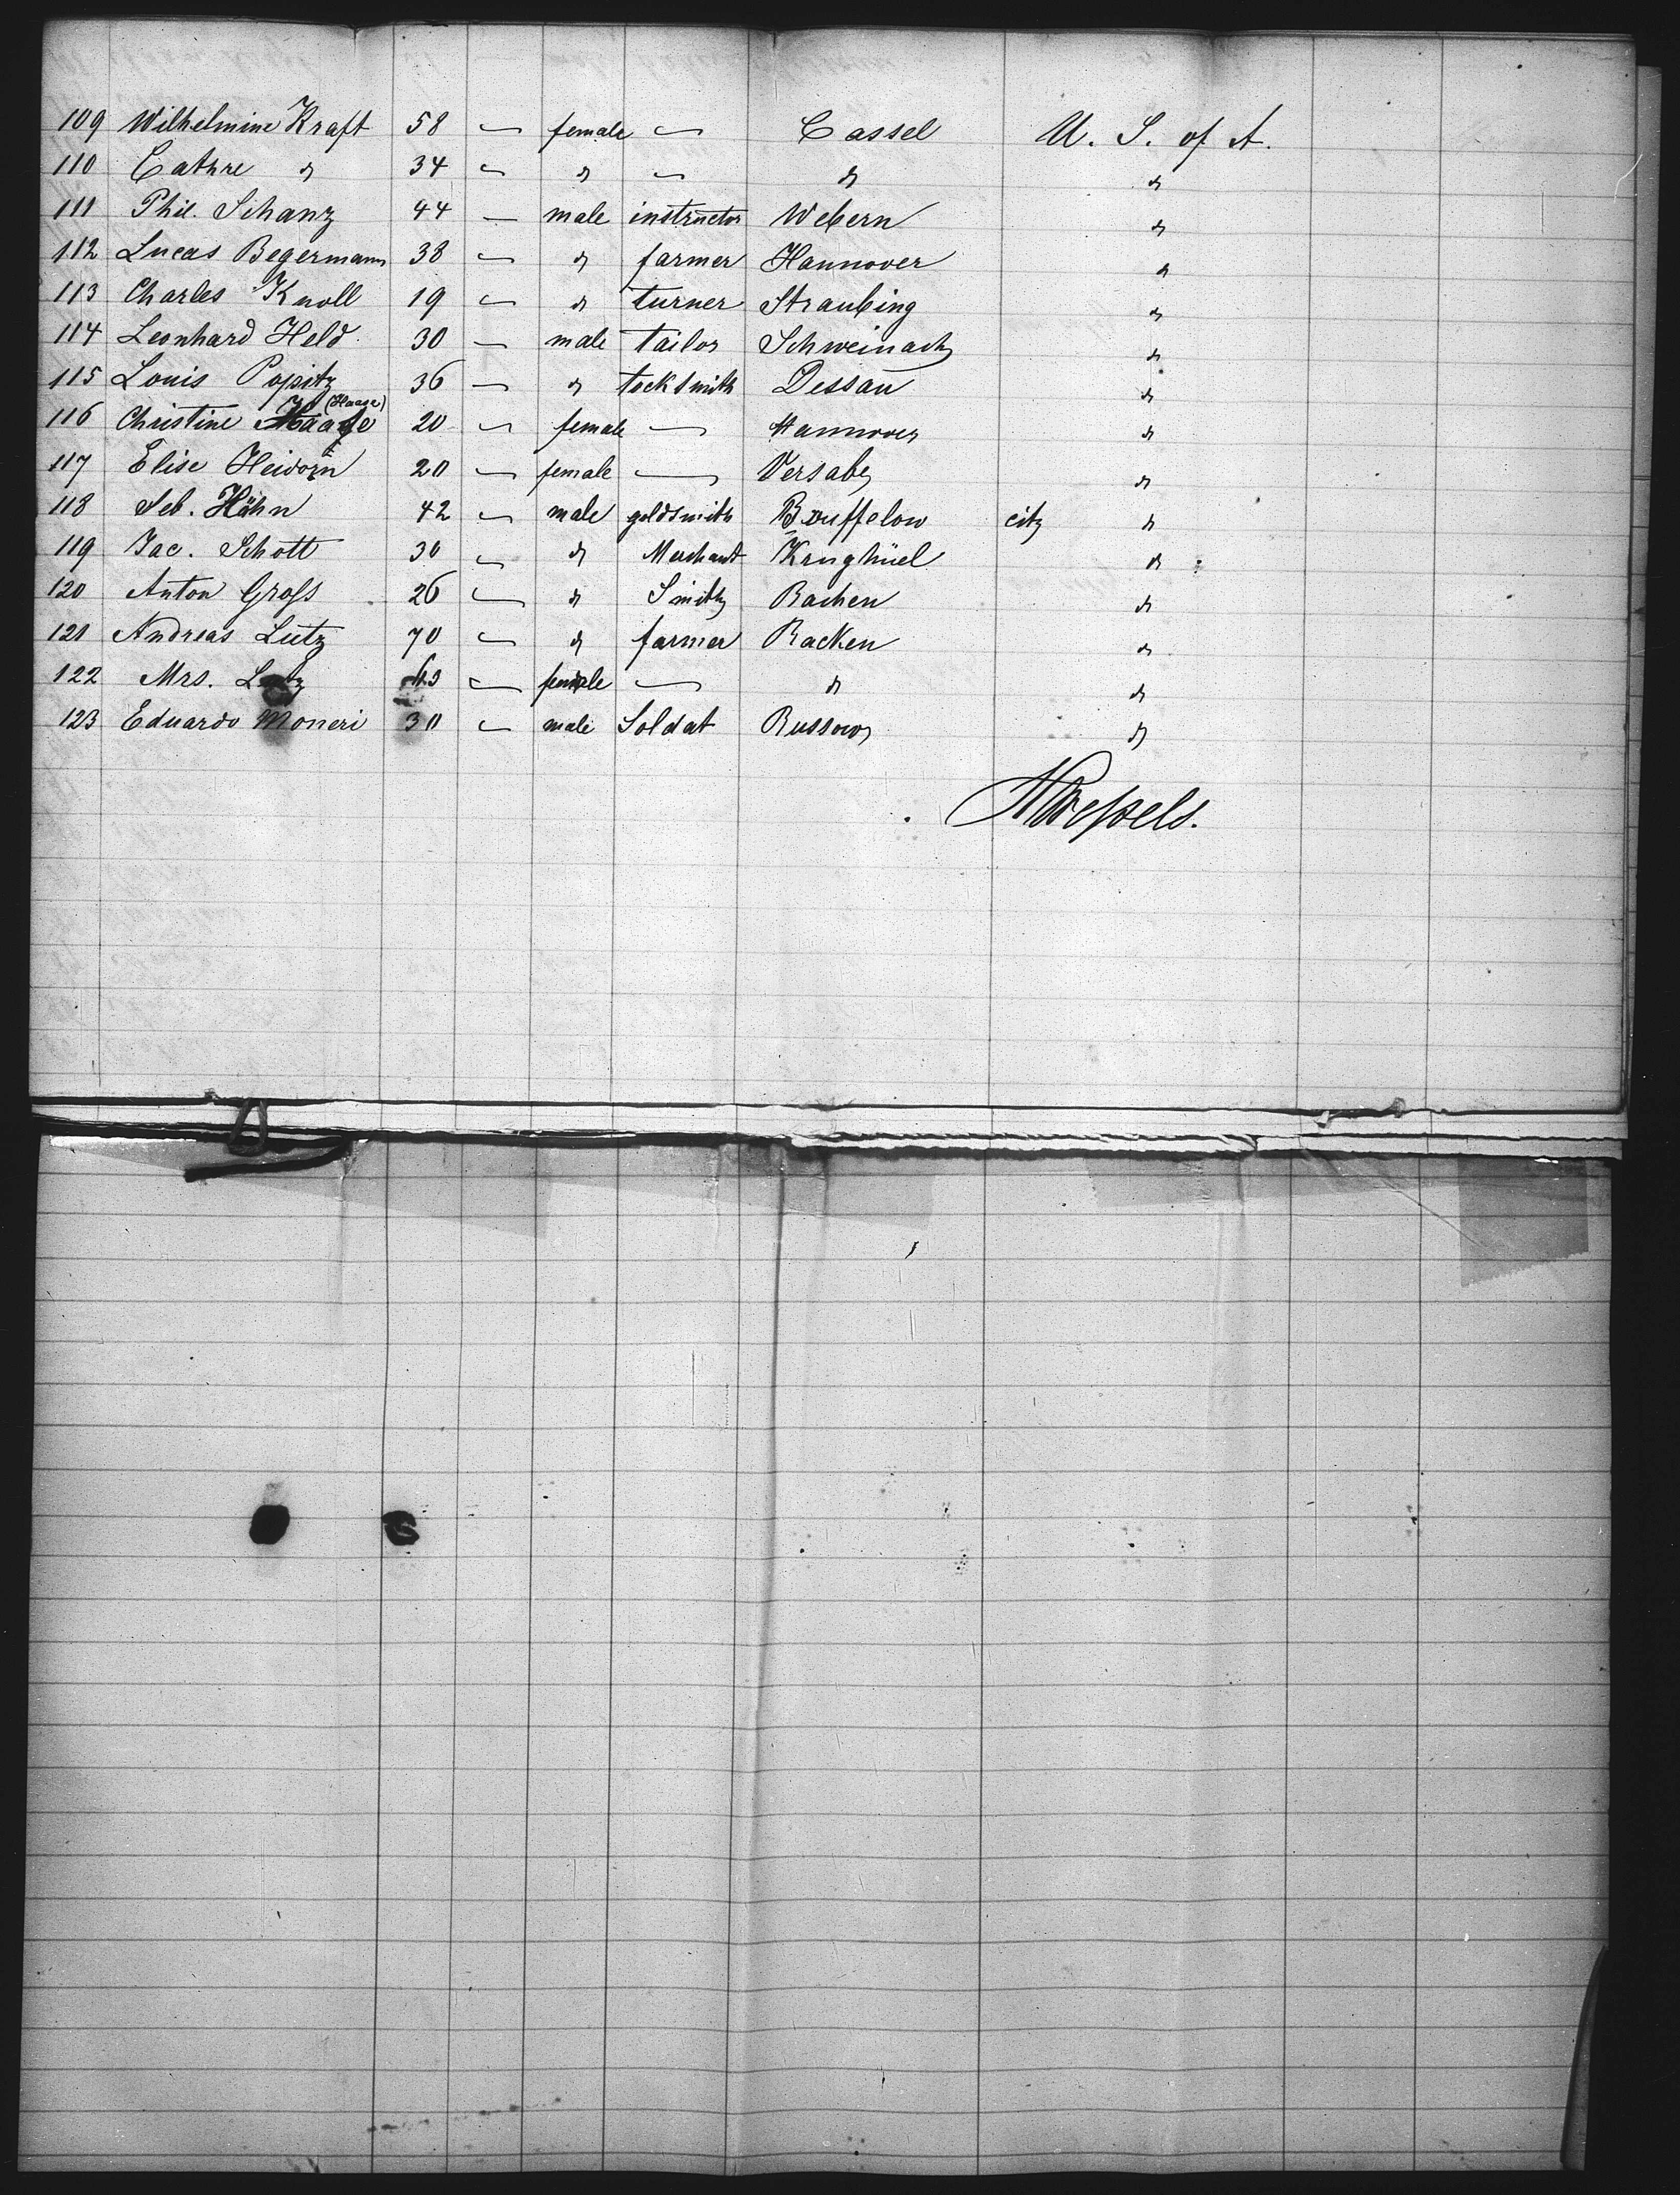 109 Wilhelmine Kraft 58 — female — Cassel U. S. of A.
110 Cathre " 34 — " — " "
111 Phil. Schanz 44 — male instructor Webern "
112 Lucas Begermann 38 — " farmer Hannover "
113 Charles Knoll 19 — " turner Straubing "
114 Leonhard Held 30 — male tailor Schweinach "
115 Louis Popitz 36 — " locksmith Dessau "
116 Christine Haage (Haage) 20 — female — Hannover "
117 Elise Heidorn 20 — female — Versabe "
118 Seb. Höhn 42 — male goldsmith city "
119 Jac. Schott 30 — " Merchant Krughüel "
120 Anton Gross 26 — " Smith Bachen "
121 Andreas Lutz 70 — " farmer Backen "
122 Mrs. Lutz 63 — female — " "
123 Eduardo Moneri 30 — male Soldat Bussow "
Wessels.